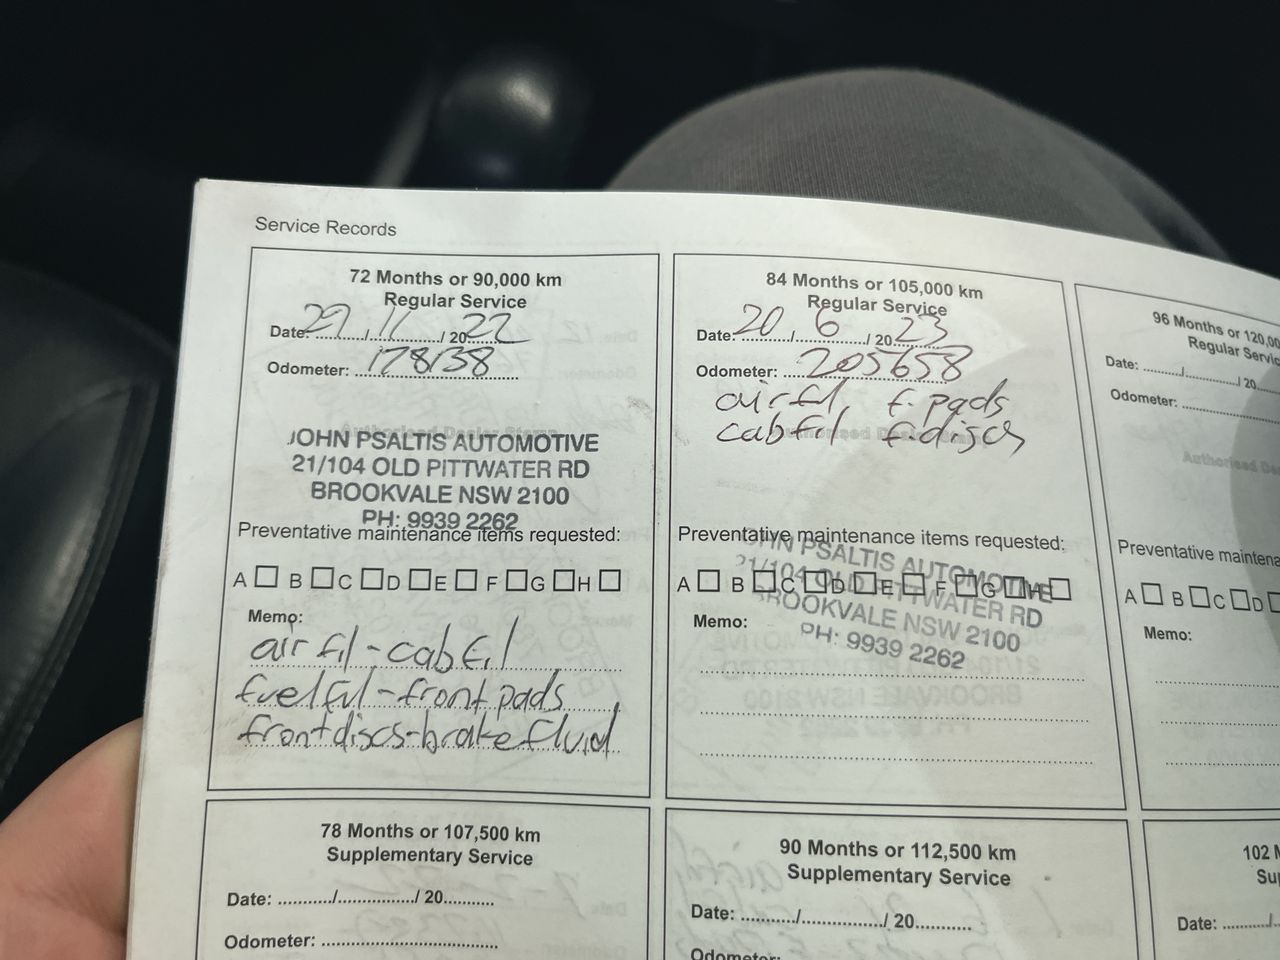 Service Records
72 Months or 90,000 km
Regular Service
Date: 29 / 11 / 20 22
Odometer: 178138
JOHN PSALTIS AUTOMOTIVE
21/104 OLD PITTWATER RD
BROOKVALE NSW 2100
PH: 9939 2262
Preventative maintenance items requested:
A B C D E F G H
Memo:
air fil - cab fil
fuel fil - front pads
front discs - brake fluid
78 Months or 107,500 km
Supplementary Service
Date: ........../............../ 20..........
Odometer: ....................................
84 Months or 105,000 km
Regular Service
Date: 20 / 6 / 20 23
Odometer: 205658
air fil, f. pads
cab fil f. discs
Preventative maintenance items requested:
JOHN PSALTIS AUTOMOTIVE
21/104 OLD PITTWATER RD
BROOKVALE NSW 2100
PH: 9939 2262
A B C D E F G H
Memo:
90 Months or 112,500 km
Supplementary Service
Date: ........../............../ 20..........
Odometer:
96 Months or 120,00
Regular Servic
Date: ......../............../ 20
Odometer:
Authorised De
Preventative maintena
A B C D
Memo:
102 M
Su
Date: ......../